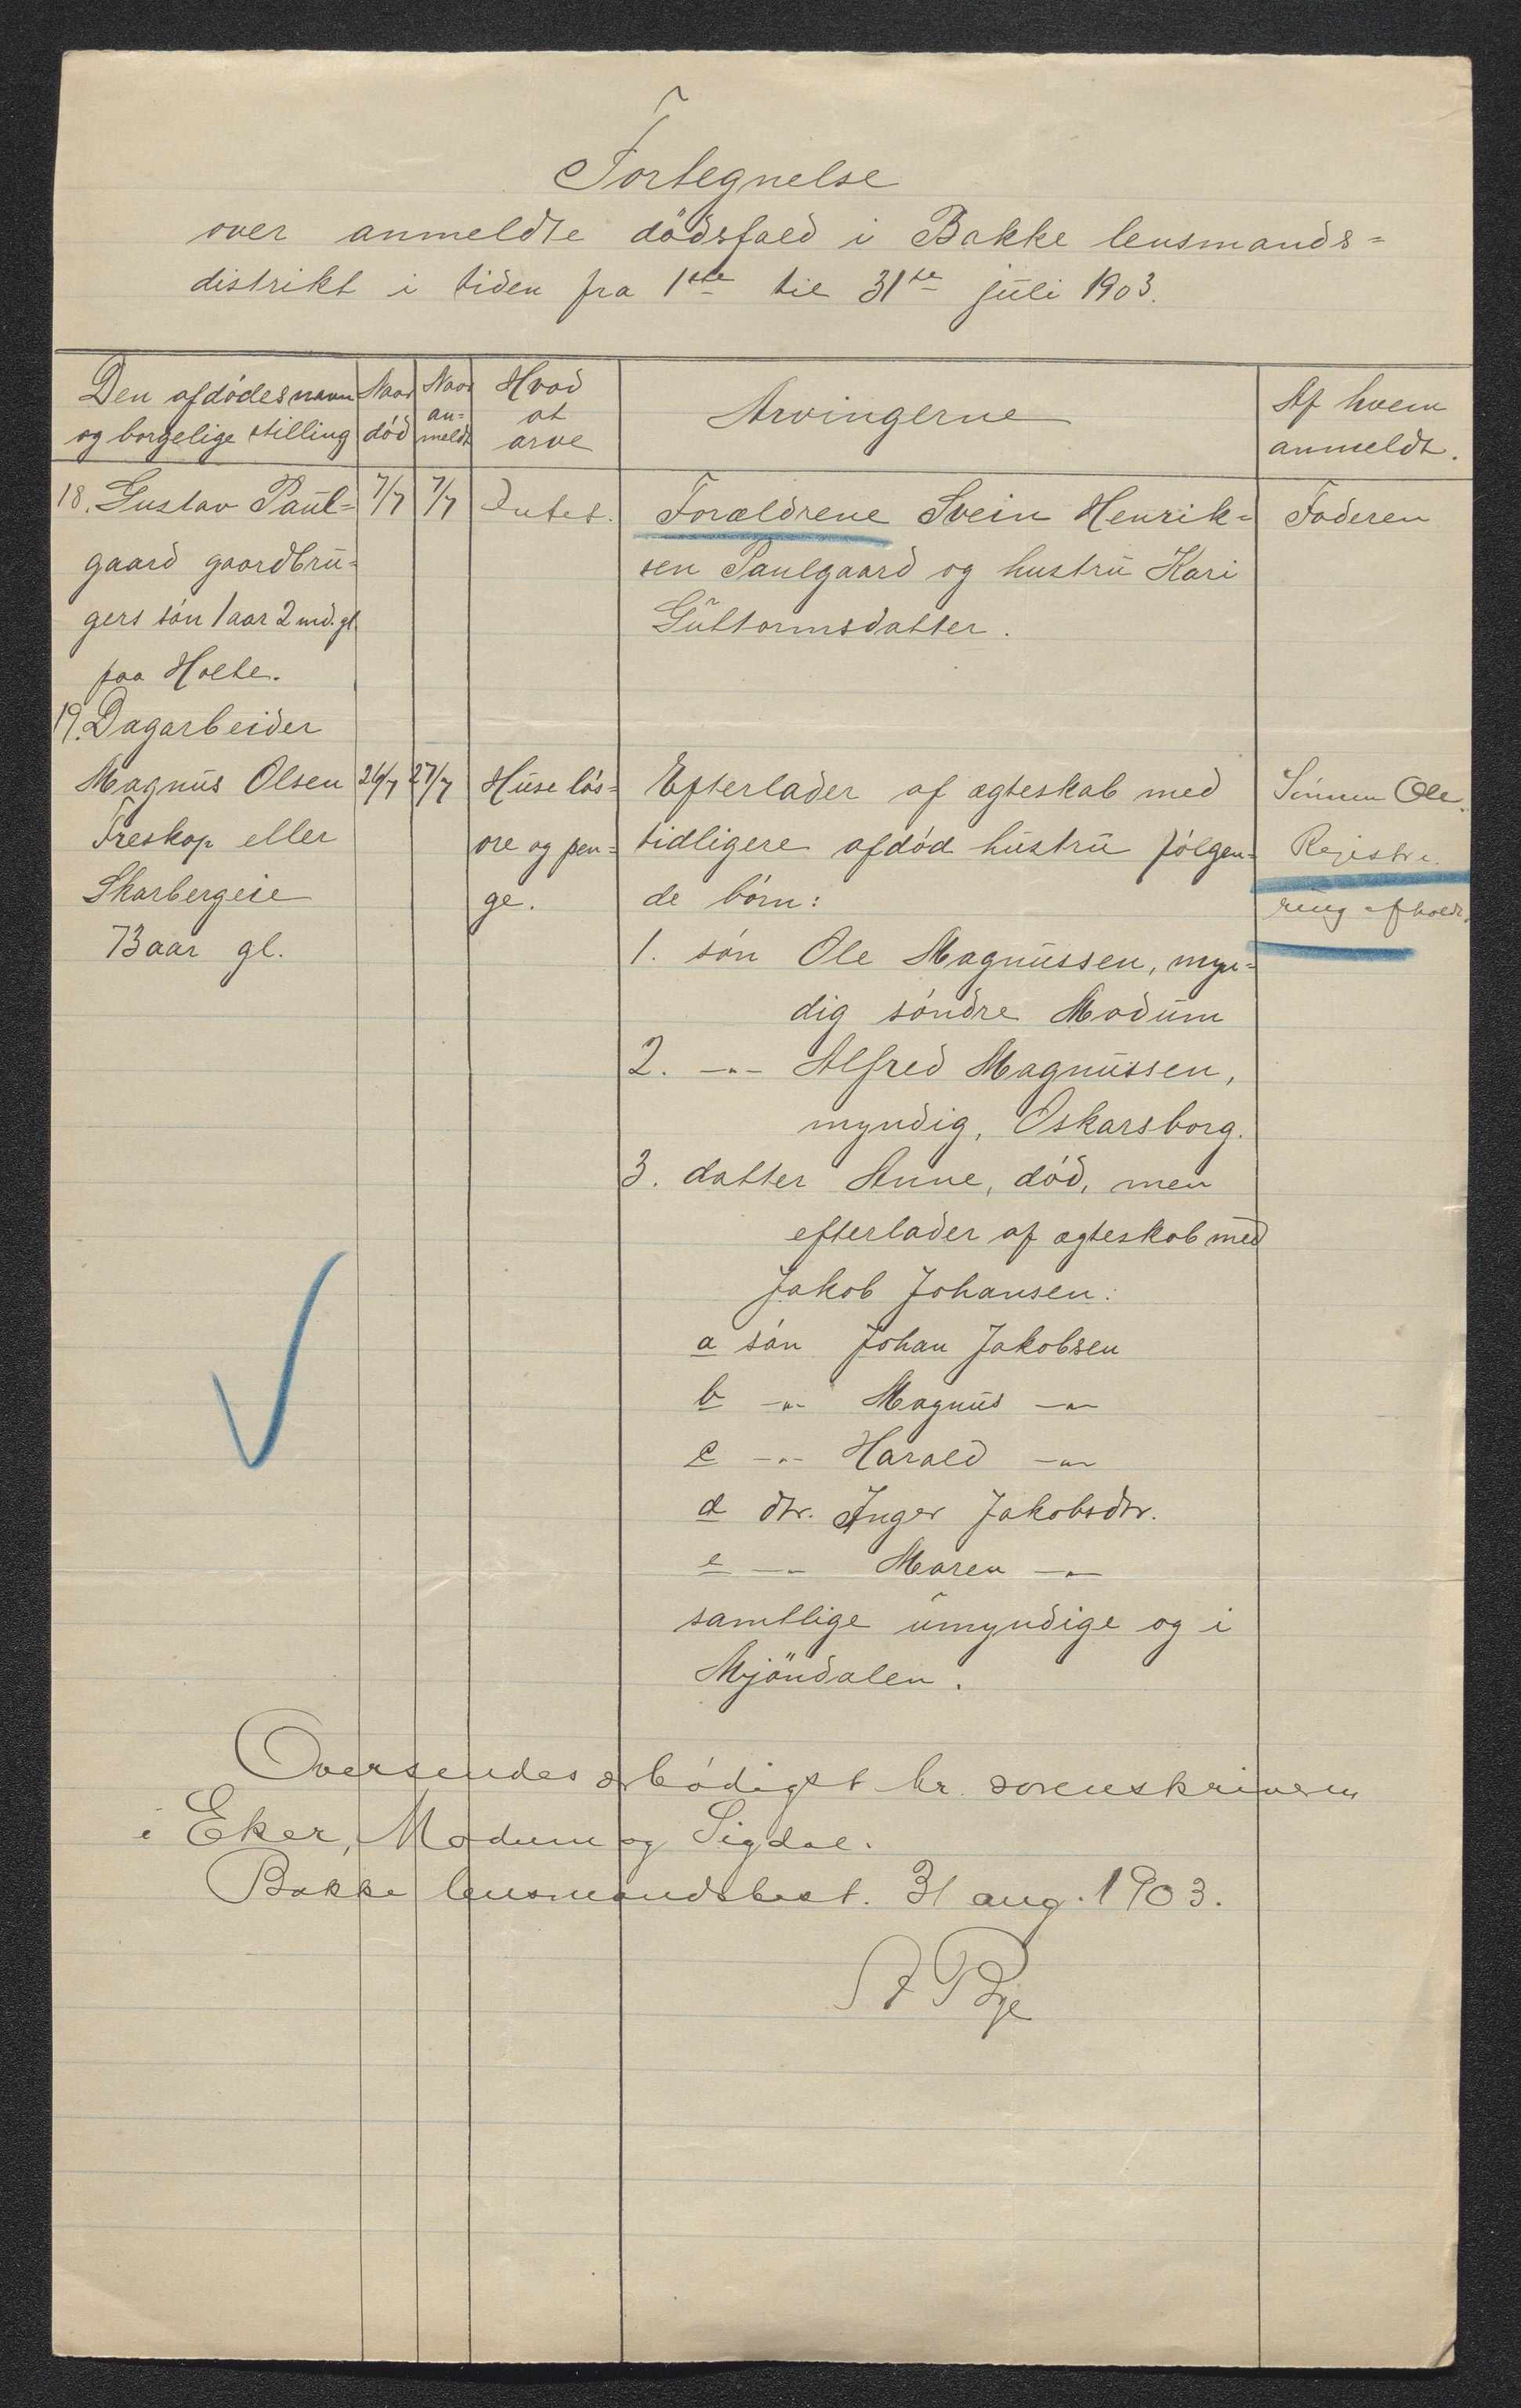 Fortegnelse
over anmeldte dödsfald i Bakke lensmands=
distrikt i tiden fra 1ste til 31te juli 1903.
Den afdödes navn
og borgelige stilling
Naar
död
Naar
an=
meldt
Hvad
at
arve
Arvingerne
Af hvem
anmeldt.
18. Gustav Paul=
gaard gaardbru=
gers sön 1 aar 2 md. gl.
paa Holte.
7/7
7/7
Intet.
Forældrene Svein Henrik=
sen Paulgaard og hustru Kari
Guttormsdatter.
Faderen
19. Dagarbeider
Magnus Olsen
Treskop eller
Skarbergeie
73 aar gl.
26/7
27/7
Huse lös=
öre og pen=
ge.
Efterlader af ægteskab med
tidligere afdöd hustru fölgen=
de börn:
1. sön Ole Magnussen, myn=
dig söndre Modum
2. -"- Alfred Magnussen,
myndig, Oskarsborg.
3. datter Anne, död, men
efterlader af ægteskab med
Jakob Johansen:
a sön Johan Jakobsen
b -"- Magnus -"-
c -"- Harald -"-
d dtr. Inger Jakobsdtr.
e -"- Maren -"-
samtlige umyndige og i
Mjöndalen.
Sönnen Ole.
Registre=
ring afholdt.
Oversendes ærbödigst hr. sorenskriveren
i Eker, Modum og Sigdal.
Bakke lensmandsbest. 31 aug. 1903.
Bye